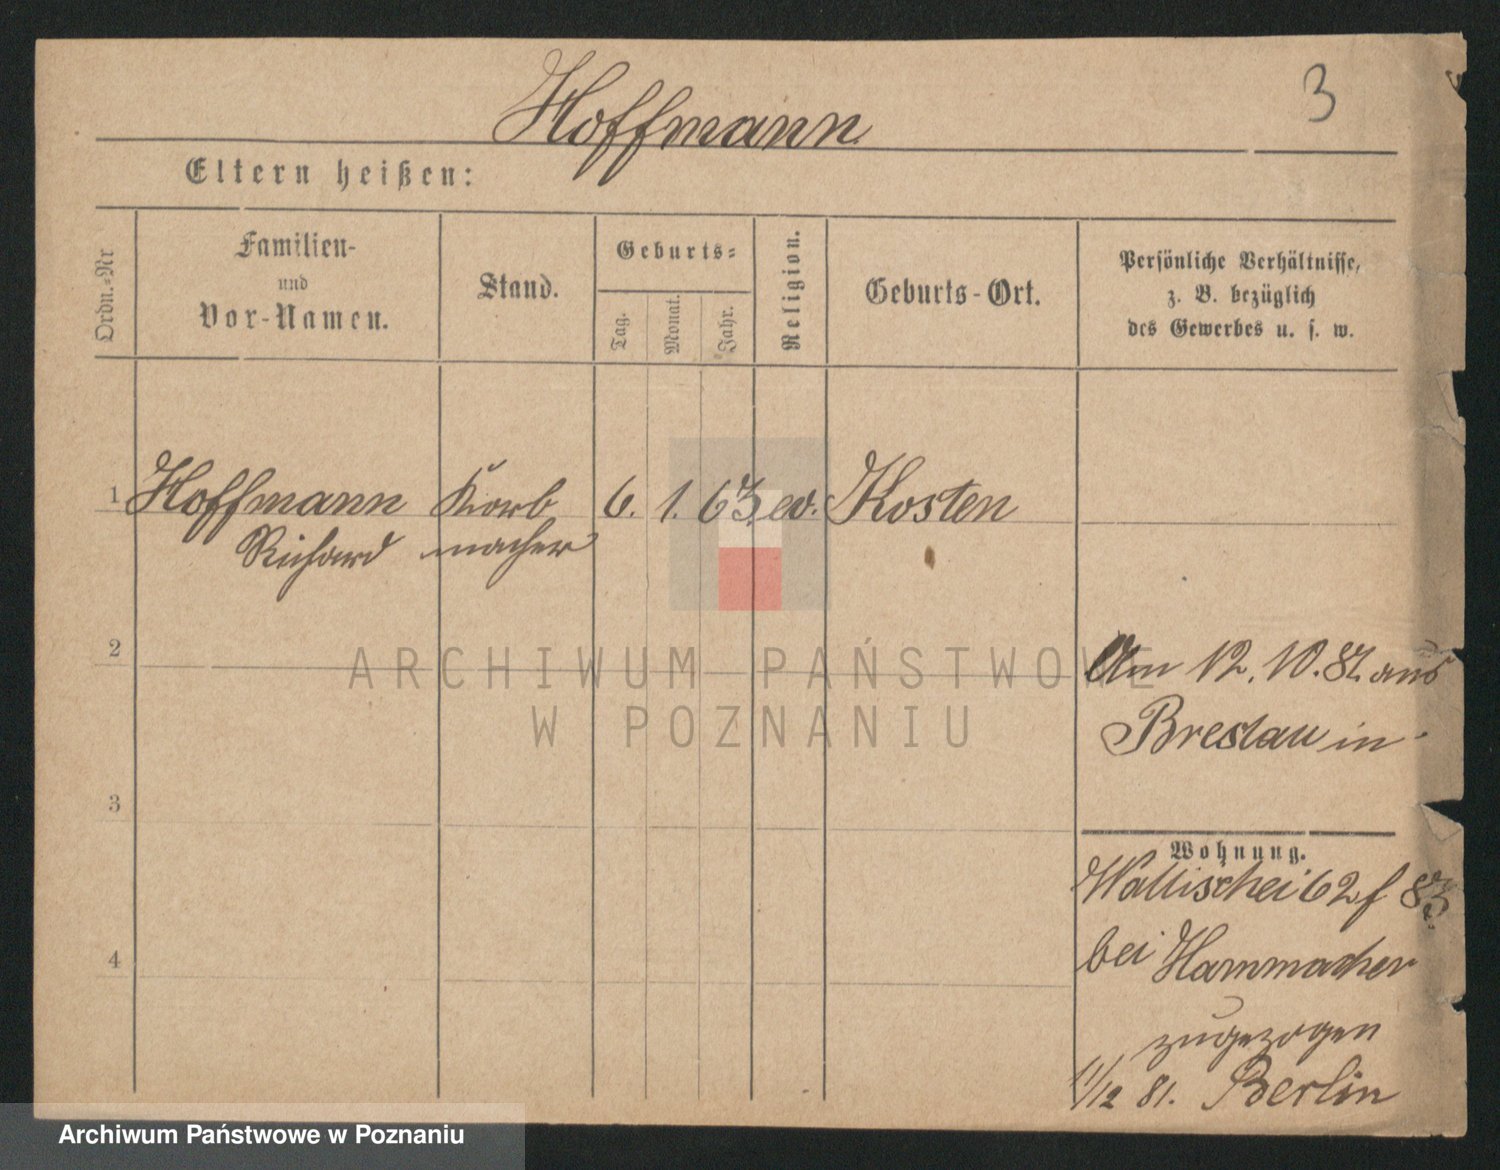 Hoffmann
3
Eltern heißen:
Ordn.=Nr
Familien-
und
Vor-Namen.
Stand.
Geburts=
Tag.
Monat.
Jahr.
Religion.
Geburts-Ort.
Persönliche Verhältnisse,
z. B. bezüglich
des Gewerbes u. s. w.
1 Hoffmann Korb 6. 1. 63 ev. Kosten
Richard macher
2
Am 12. 10. 81 aus
ARCHIWUM PAŃSTWOWE
W POZNANIU
Breslau in
3
Wohnung.
Wallischei 62 f 83
bei Hammacher
4
zugezogen
11/12 81. Berlin
Archiwum Państwowe w Poznaniu